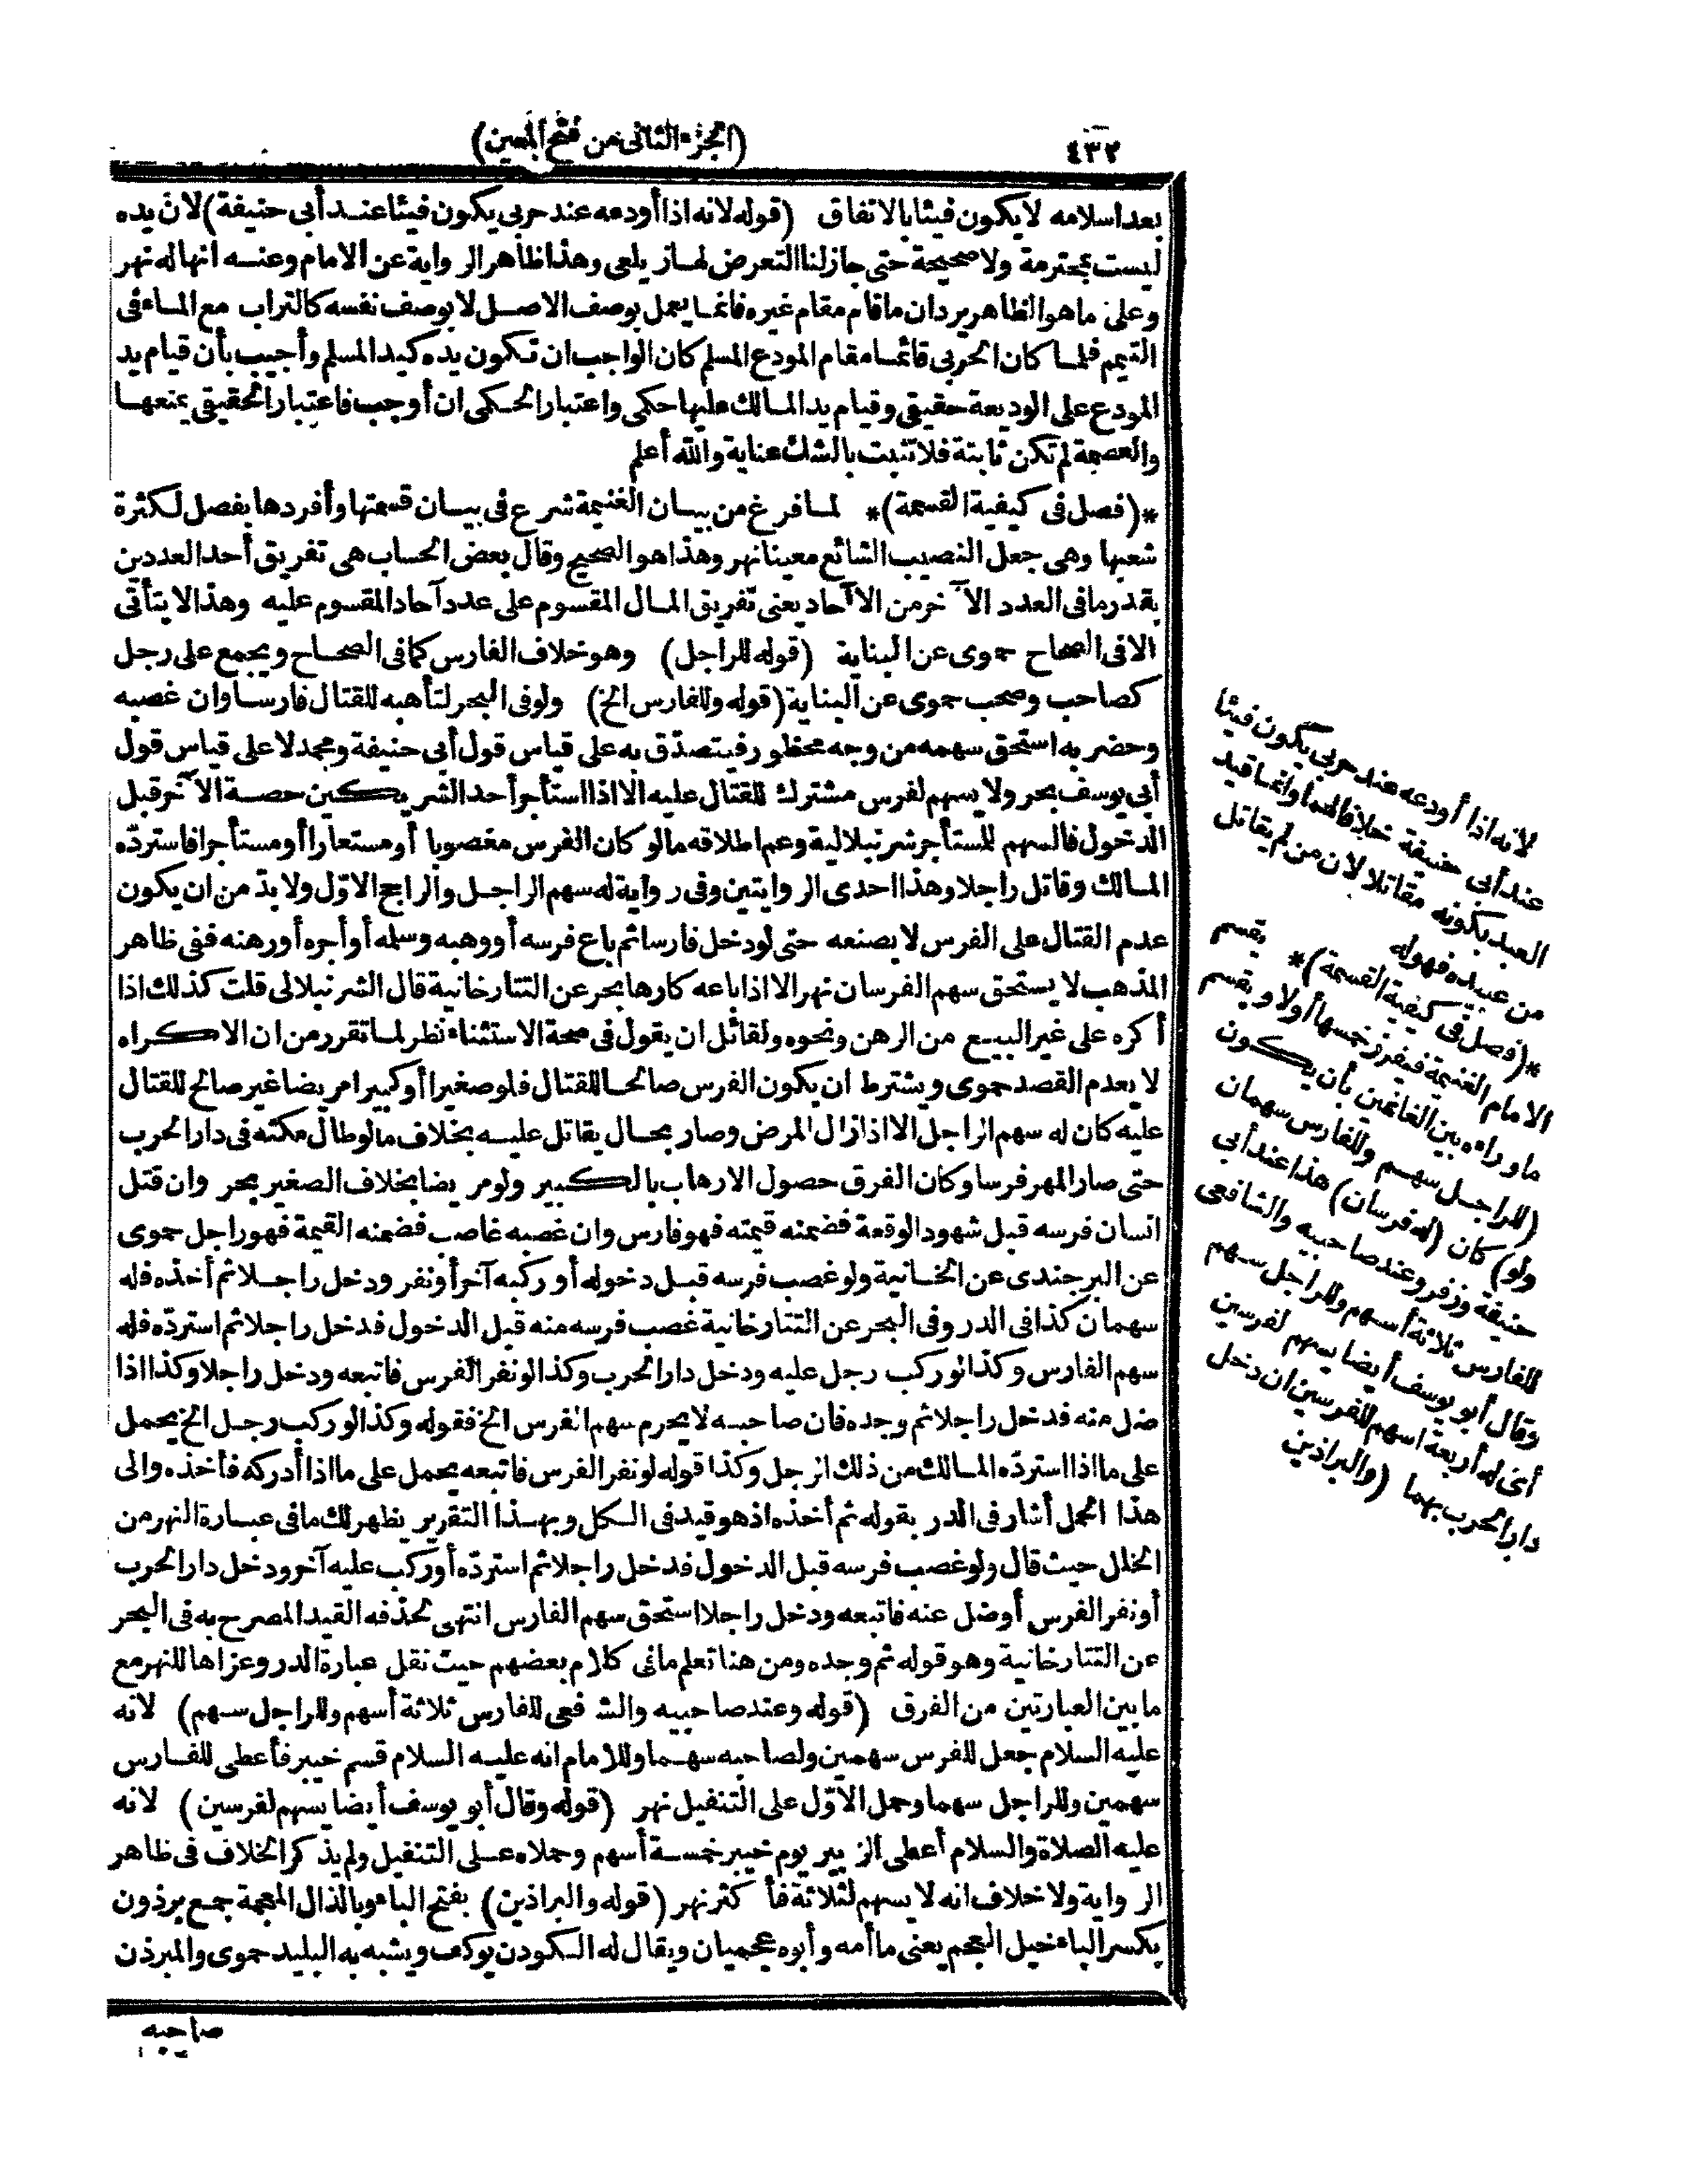 ٤٣٢
(الجزء الثانى من فتح المعين)
بعد اسلامه لا يكون فيئا بالاتفاق (قوله لانه اذا أودعه عند حربى يكون فيئا عند أبى حنيفة) لان يده
ليست بمحترمة ولا صحيحة حتى جاز لنا التعرض لها زيلعى وهذا ظاهر الرواية عن الامام وعنه انها له نهر
وعلى ما هو الظاهر يرد ان ما قام مقام غيره فانما يعمل بوصف الاصل لا بوصف نفسه كالتراب مع الماء فى
التيمم فلما كان الحربى قائما مقام المودع المسلم كان الواجب ان تكون يده كيد المسلم وأجيب بأن قيام يد
المودع على الوديعة حقيقى وقيام يد المالك عليها حكمى واعتبار الحكمى ان أوجب فاعتبار الحقيقى يمنعها
والعصمة لم تكن ثابتة فلا تثبت بالشك عناية والله أعلم
*(فصل فى كيفية القسمة)* لما فرغ من بيان الغنيمة شرع فى بيان قسمتها وأفردها بفصل لكثرة
شعبها وهى جعل النصيب الشائع معينا نهر وهذا هو الصحيح وقال بعض الحساب هى تفريق أحد العددين
بقدر ما فى العدد الآخر من الآحاد يعنى تفريق المال المقسوم على عدد آحاد المقسوم عليه وهذا لا يتأتى
الا فى الصحاح حموى عن البناية (قوله للراجل) وهو خلاف الفارس كما فى الصحاح ويجمع على رجل
كصاحب وصحب حموى عن البناية (قوله وللفارس الخ) ولو فى البحر لتأهبه للقتال فارسا وان غصبه
وحضر به استحق سهمه من وجه محظور فيتصدّق به على قياس قول أبى حنيفة ومحمد لا على قياس قول
أبى يوسف بحر ولا يسهم لفرس مشترك للقتال عليه الا اذا استأجر أحد الشريكين حصة الآخر قبل
الدخول فالسهم للمستأجر شرنبلالية وعم اطلاقه ما لو كان الفرس مغصوبا أو مستعارا أو مستأجرا فاستردّه
المالك وقاتل راجلا وهذا احدى الروايتين وفى رواية له سهم الراجل والراجح الاوّل ولا بدّ من ان يكون
عدم القتال على الفرس لا بصنعه حتى لو دخل فارسا ثم باع فرسه أو وهبه وسلمه أو أجره أو رهنه ففى ظاهر
المذهب لا يستحق سهم الفرسان نهر الا اذا باعه كارها بحر عن التتارخانية قال الشرنبلالى قلت كذلك اذا
أكره على غير البيع من الرهن ونحوه ولقائل ان يقول فى صحة الاستثناء نظر لما تقرر من ان الاكراه
لا يعدم القصد حموى ويشترط ان يكون الفرس صالحا للقتال فلو صغيرا أو كبيرا مريضا غير صالح للقتال
عليه كان له سهم الراجل الا اذا زال المرض وصار بحال يقاتل عليه بخلاف ما لو طال مكثه فى دار الحرب
حتى صار المهر فرسا وكان الفرق حصول الارهاب بالكبير ولو مريضا بخلاف الصغير بحر وان قتل
انسان فرسه قبل شهود الوقعة فضمنه قيمته فهو فارس وان غصبه غاصب فضمنه القيمة فهو راجل حموى
عن البرجندى عن الخانية ولو غصب فرسه قبل دخوله أو ركبه آخر أو نفر ودخل راجلا ثم أخذه فله
سهمان كذا فى الدر وفى البحر عن التتارخانية غصب فرسه منه قبل الدخول فدخل راجلا ثم استردّه فله
سهم الفارس وكذا لو ركب رجل عليه ودخل دار الحرب وكذا لو نفر الفرس فاتبعه ودخل راجلا وكذا اذا
ضل منه فدخل راجلا ثم وجده فان صاحبه لا يحرم سهم الفرس الخ فقوله وكذا لو ركب رجل الخ يحمل
على ما اذا استردّه المالك من ذلك الرجل وكذا قوله لو نفر الفرس فاتبعه يحمل على ما اذا أدركه فأخذه والى
هذا الحمل أشار فى الدر بقوله ثم أخذه اذ هو قيد فى الكل وبهذا التقرير يظهر لك ما فى عبارة النهر من
الخلل حيث قال ولو غصب فرسه قبل الدخول فدخل راجلا ثم استردّه أو ركب عليه آخر ودخل دار الحرب
أو نفر الفرس أو ضل عنه فاتبعه ودخل راجلا استحق سهم الفارس انتهى لحذفه القيد المصرح به فى البحر
عن التتارخانية وهو قوله ثم وجده ومن هنا تعلم ما فى كلام بعضهم حيث نقل عبارة الدر وعزاها للنهر مع
ما بين العبارتين من الفرق (قوله وعند صاحبيه والشافعى للفارس ثلاثة أسهم وللراجل سهم) لانه
عليه السلام جعل للفرس سهمين ولصاحبه سهما وللامام انه عليه السلام قسم خيبر فأعطى للفارس
سهمين وللراجل سهما وحمل الاوّل على التنفيل نهر (قوله وقال أبو يوسف أيضا يسهم لفرسين) لانه
عليه الصلاة والسلام أعطى الزبير يوم خيبر خمسة أسهم وحملاه على التنفيل ولم يذكر الخلاف فى ظاهر
الرواية ولا خلاف انه لا يسهم لثلاثة فأكثر نهر (قوله والبراذين) بفتح الباء وبالذال المعجمة جمع برذون
بكسر الباء خيل العجم يعنى ما أمه وأبوه عجميان ويقال له الكودن يوكف ويشبه به البليد حموى والمبرذن
صاحبه
لانه اذا أودعه عند حربى يكون فيئا
عند أبى حنيفة خلافا لهما وانما قيد
العبد بكونه مقاتلا لان من لم يقاتل
من عبيده فهو له
*(فصل فى كيفية القسمة)* يقسم
الامام الغنيمة فيفرز خمسها أولا ويقسم
ما وراءه بين الغانمين بأن يكون
(للراجل سهم وللفارس سهمان
ولو) كان (له فرسان) هذا عند أبى
حنيفة وزفر وعند صاحبيه والشافعى
للفارس ثلاثة أسهم وللراجل سهم
وقال أبو يوسف أيضا يسهم لفرسين
أى له أربعة اسهم للفرسين ان دخل
دار الحرب بهما (والبراذين